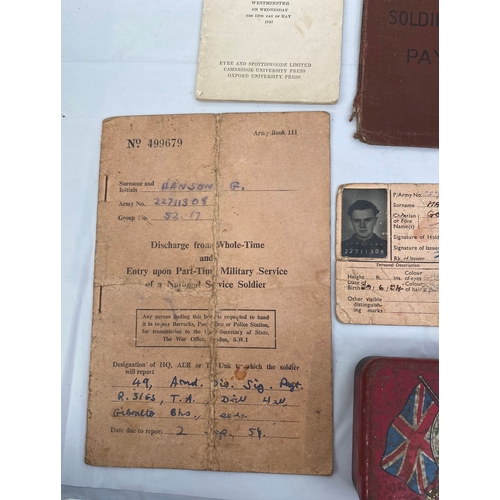 WESTMINSTER
ON WEDNESDAY
THE 12TH DAY OF MAY
1937
EYRE AND SPOTTISWOODE LIMITED
CAMBRIDGE UNIVERSITY PRESS
OXFORD UNIVERSITY PRESS
SOLDI
PAY
Nº 499679
Army Book 111
Surname and Initials HANSON G.
Army No. 22711308
Group No. 52.17
Discharge from Whole-Time
and
Entry upon Part-Time Military Service
of a National Service Soldier
Any person finding this book is requested to hand
it in to any Barracks, Post Office or Police Station,
for transmission to the Under Secretary of State,
The War Office, London, S.W.1
Designation of HQ, AER or TA Unit to which the soldier
will report
49, Armd. Div. Sig. Regt.
R. SIGS, T.A. Drill Hall,
Gibraltar Bks., Leeds.
Date due to report: 2 Sep. 54.
P/Army No.
Surname HA
Christian
or Fore
Name(s)
Signature of Hold
Signature of Issuer
Rk. of Issuer
22711308
Personal Description
Height ft. ins.
Colour
of eyes
Date of
Birth
Colour
of hair
Other visible
distinguish-
ing marks